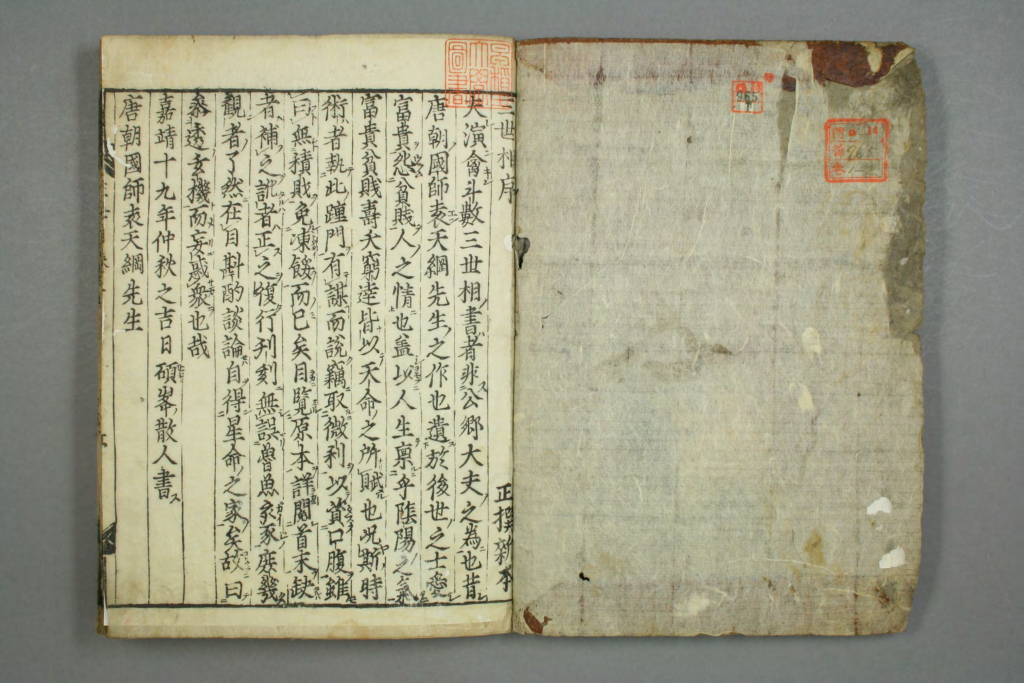 三世相序
正撰新本
夫演禽斗數三世相書者非公卿大夫之為也昔
唐朝國師袁天綱先生之作也遺於後世之士愛
富貴怨貧賤人之情也盖以人生稟乎陰陽之
富貴貧賤壽夭窮達皆以天命之所賦也况斯時
術者執此踵門有謀而說竊取微利以資口腹雖
曰無積賍免凍餒而已矣目覽原本詳閱首末缺
者補之訛者正之復行刋刻無誤魯魚亥豕庶幾
觀者了然在目斟酌談論自得星命之家矣故曰
參透玄機而妄惑衆也哉
嘉靖十九年仲秋之吉日碩峯散人書
唐朝國師袁天綱先生